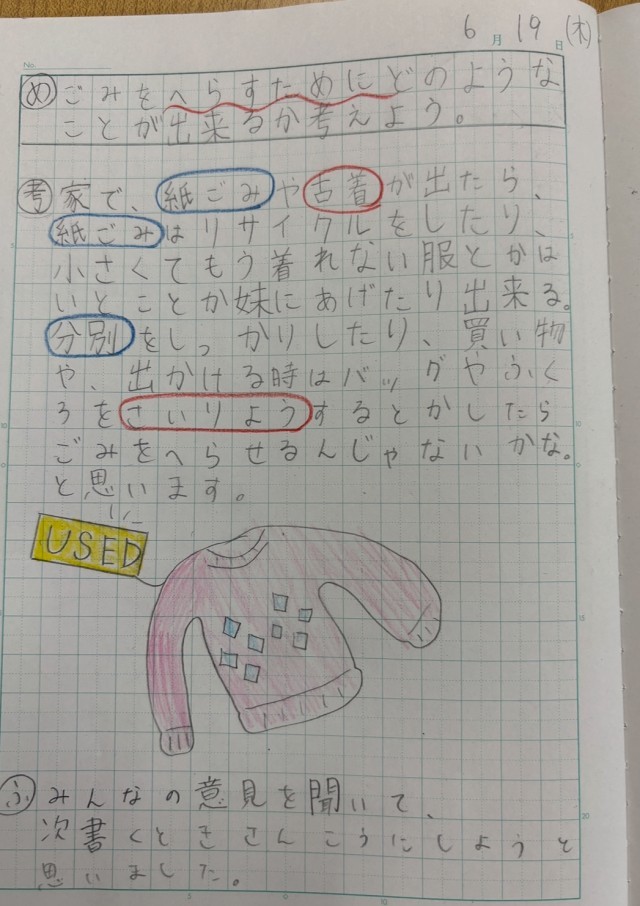 6月19日(木)
No.
め ごみをへらすためにどのような
ことが出来るか考えよう。
考 家で、紙ごみや古着が出たら、
紙ごみはリサイクルをしたり、
小さくてもう着れない服とかは
いとことか妹にあげたり出来る。
分別をしっかりしたり、買い物
や、出かける時はバッグやふく
ろをさいりようするとかしたら
ごみをへらせるんじゃないかな。
と思います。
USED
ふ みんなの意見を聞いて、
次書くときさんこうにしようと
思いました。